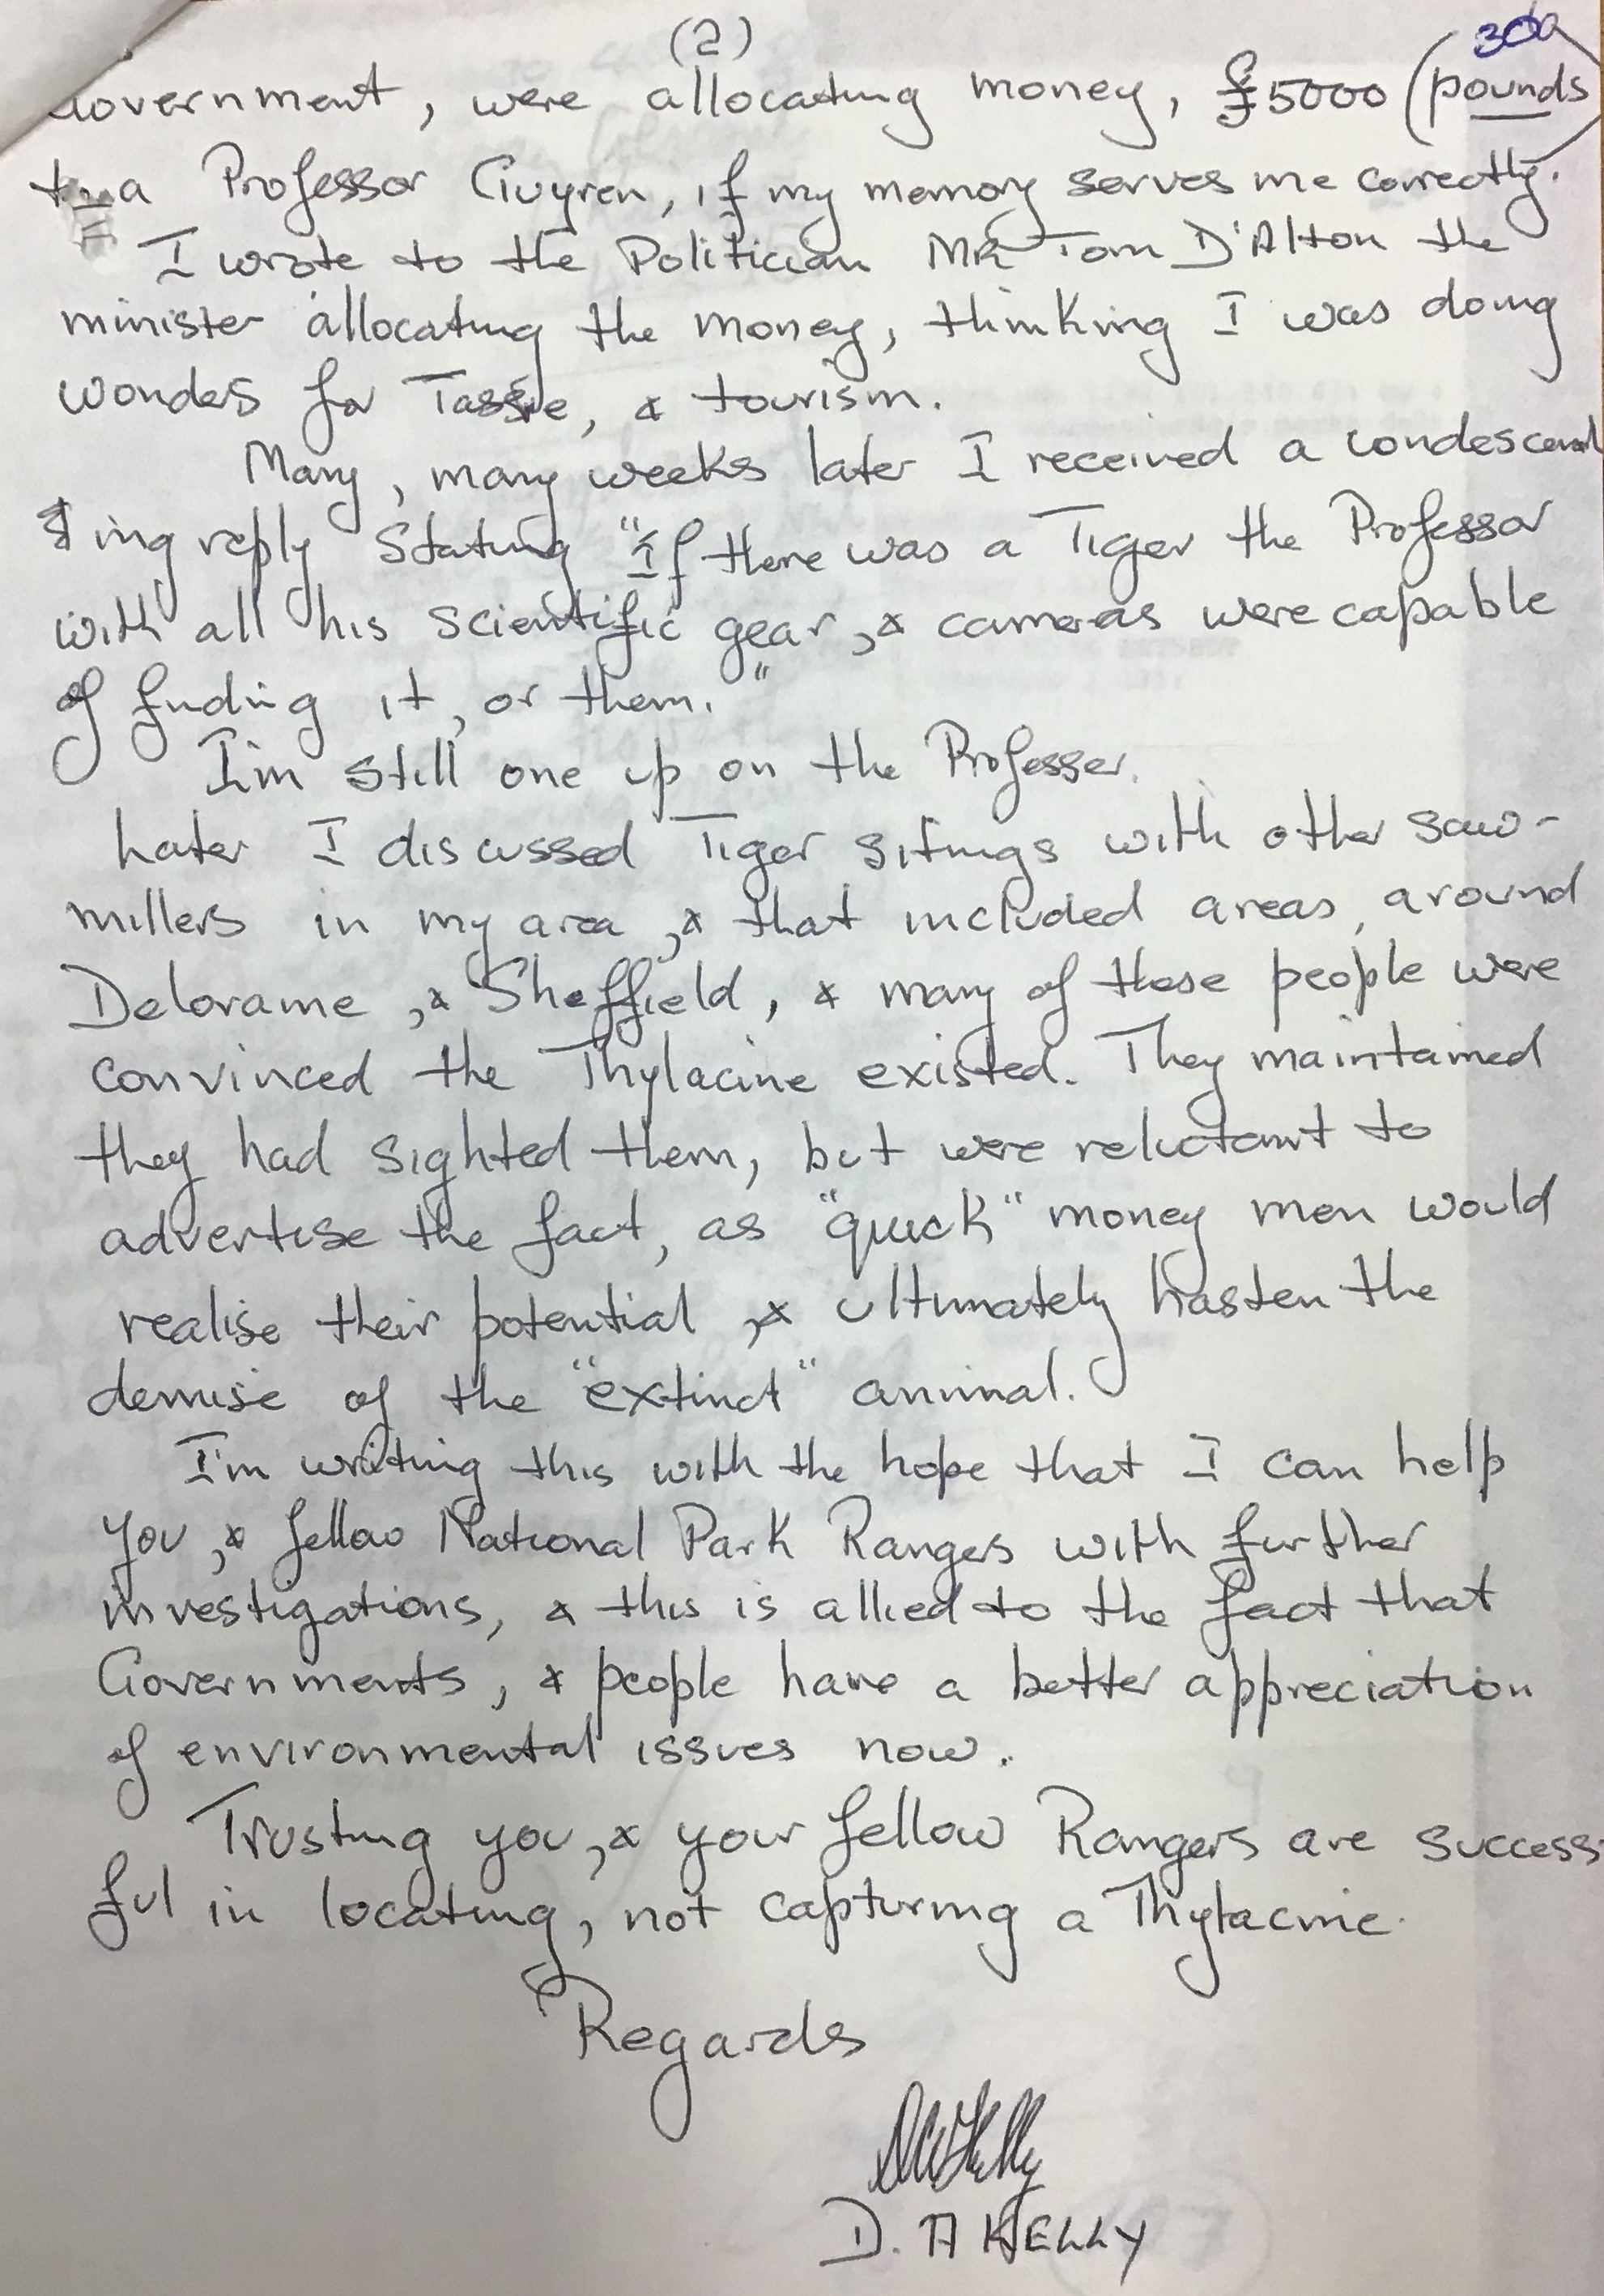 (2)
30a
Government, were allocating money, £5000 (pounds
to a Professor Guyren, if my memory serves me correctly.
I wrote to the Politician Mr Tom D'Alton the
minister allocating the money, thinking I was doing
wonders for Tassie, & tourism.
Many, many weeks later I received a condescend
ing reply Stating "If there was a Tiger the Professor
with all his scientific gear, & cameras were capable
of finding it, or them."
I'm still one up on the Professer.
Later I discussed Tiger sitings with other saw-
millers in my area, & that included areas, around
Deloraine, & Sheffield, & many of these people were
convinced the Thylacine existed. They maintained
they had sighted them, but were reluctant to
advertise the fact, as "quick" money men would
realise their potential, & ultimately hasten the
demise of the "extinct" animal.
I'm writing this with the hope that I can help
you, & fellow National Park Rangers with further
investigations, & this is allied to the fact that
Governments, & people have a better appreciation
of environmental issues now.
Trusting you, & your fellow Rangers are success
ful in locating, not capturing a Thylacine.
Regards
D. A KELLY